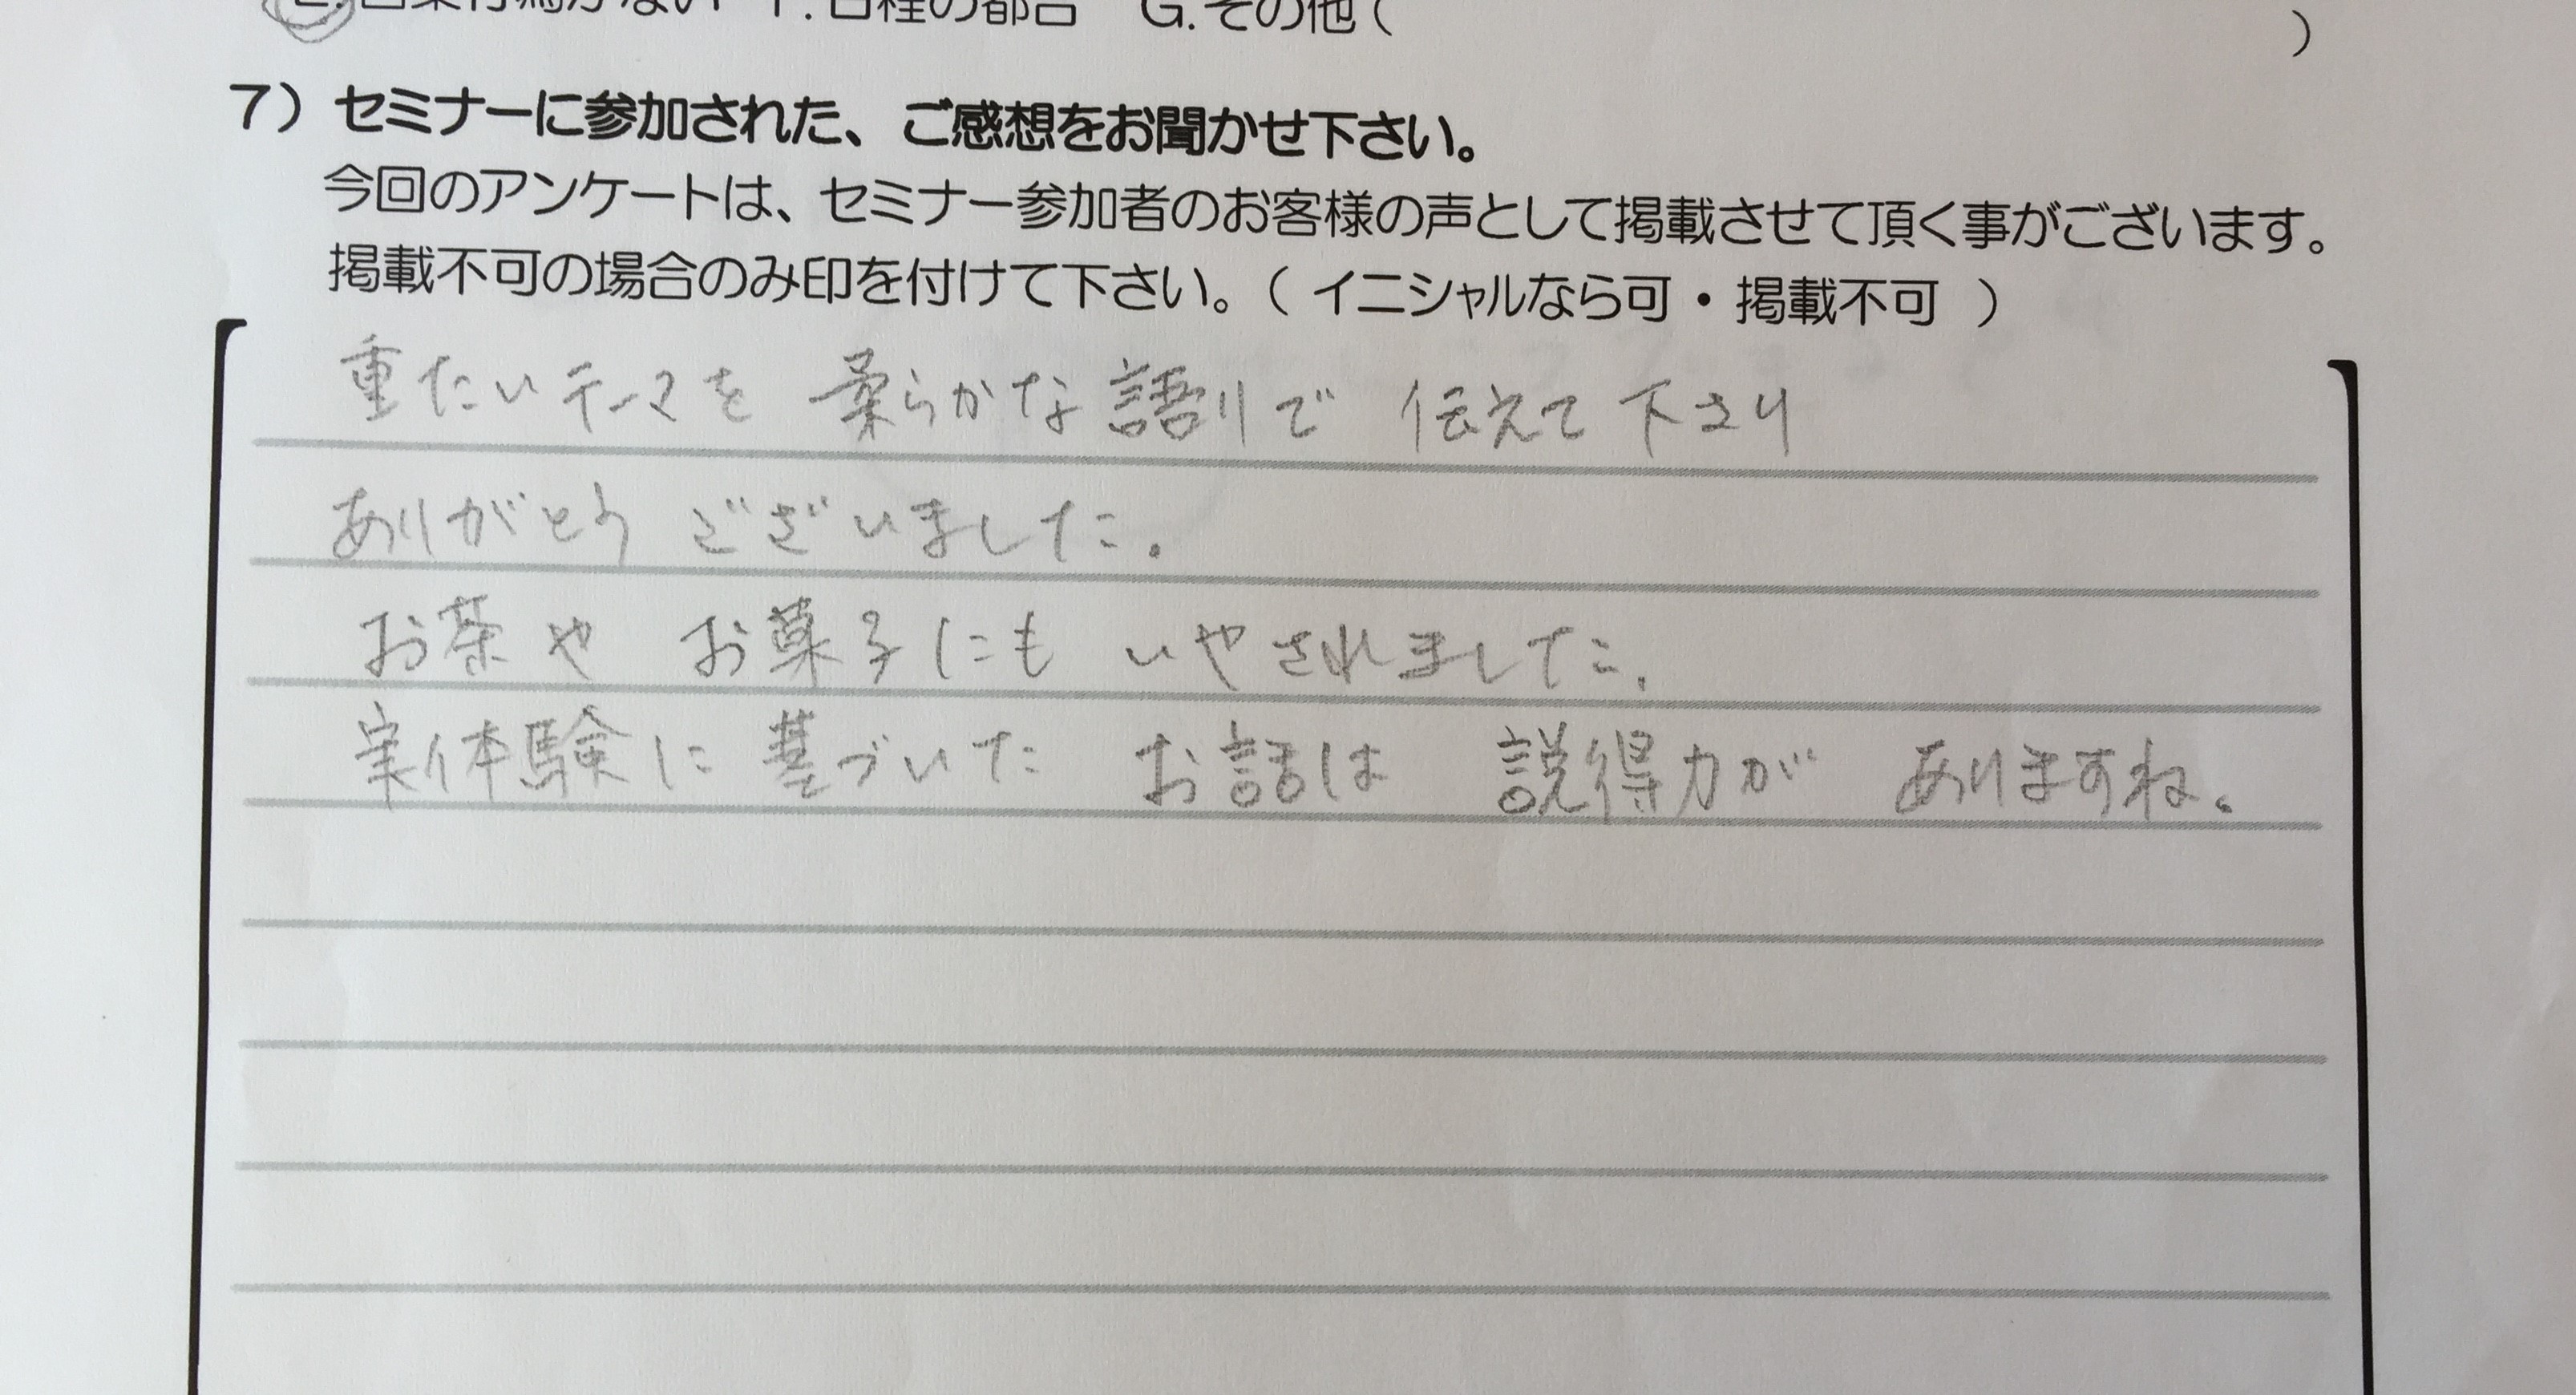 E.営業行為がない F.日程の都合 G.その他( )
7）セミナーに参加された、ご感想をお聞かせ下さい。
今回のアンケートは、セミナー参加者のお客様の声として掲載させて頂く事がございます。
掲載不可の場合のみ印を付けて下さい。（ イニシャルなら可・掲載不可 ）
重たいテーマを 柔らかな語りで 伝えて下さり
ありがとう ございました.
お茶や お菓子にも いやされました.
実体験に基づいた お話は 説得力が ありますね。